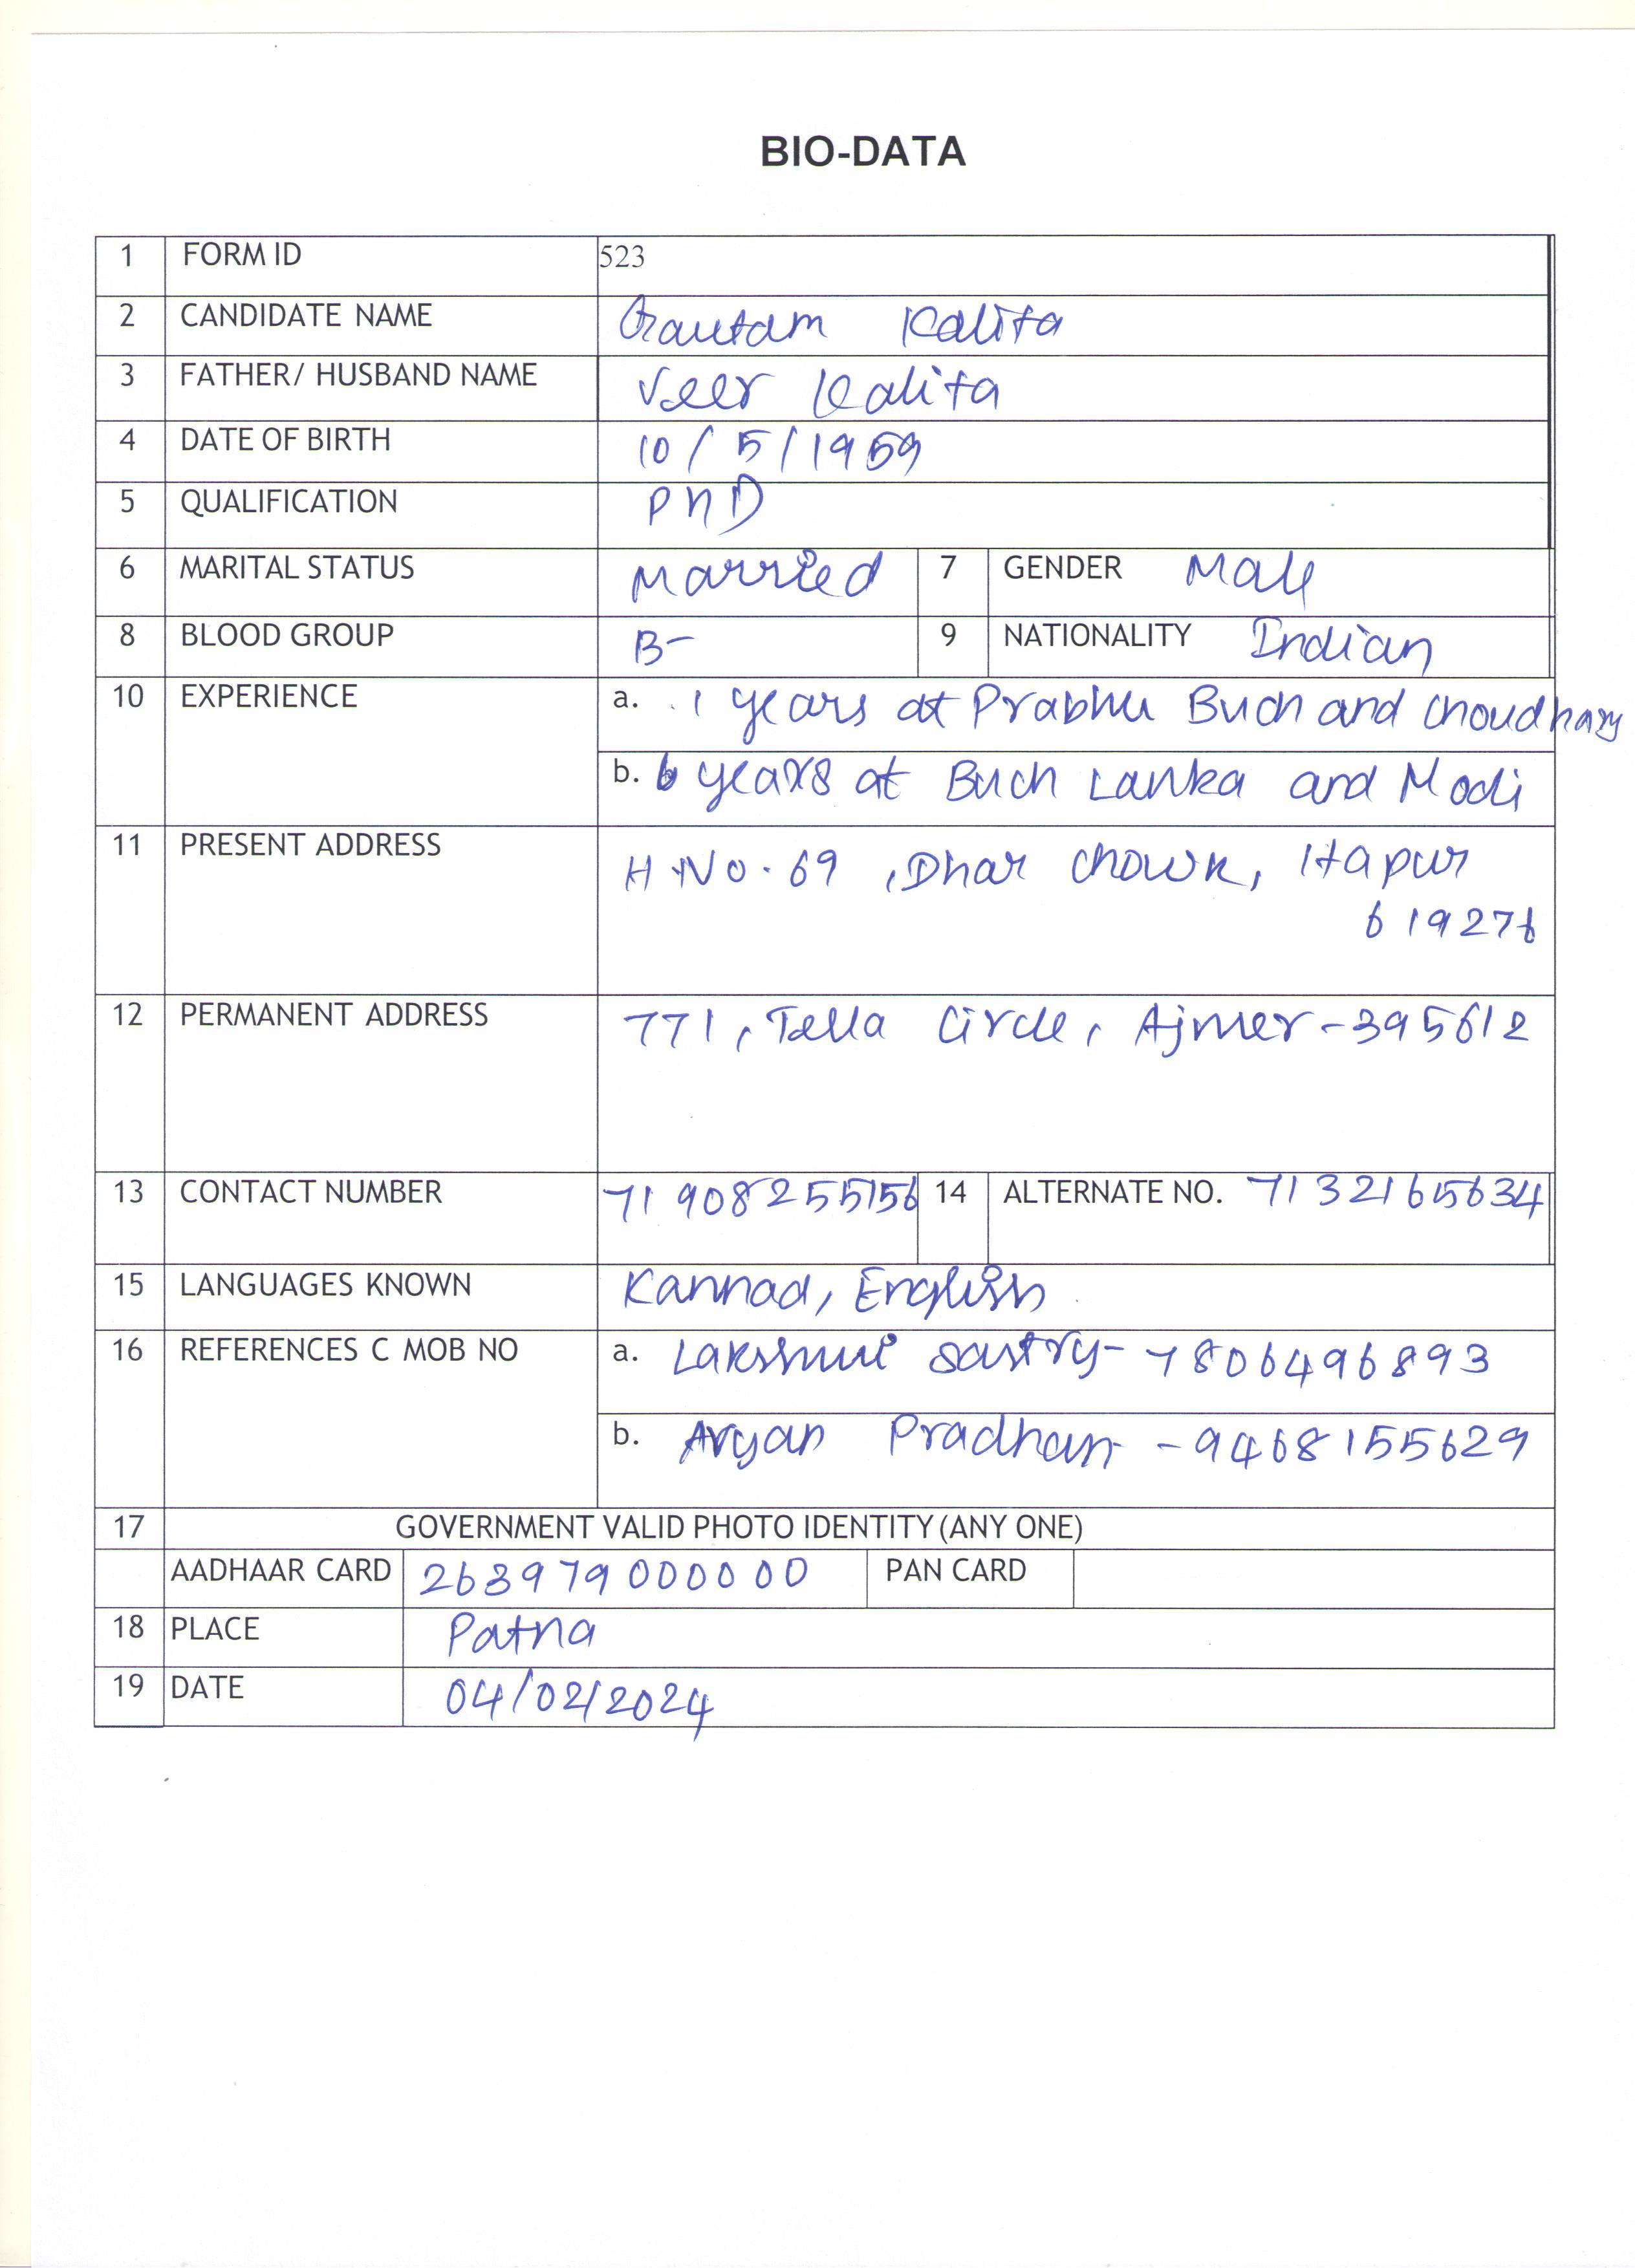 BIO-DATA
1 FORM ID 523
2 CANDIDATE NAME Gautam Kalita
3 FATHER/ HUSBAND NAME Veer Kalita
4 DATE OF BIRTH 10/5/1959
5 QUALIFICATION PhD
6 MARITAL STATUS Married 7 GENDER Male
8 BLOOD GROUP B- 9 NATIONALITY Indian
10 EXPERIENCE a. 1 years at Prabhu Buch and Choudhary
b. 6 years at Buch Lanka and Modi
11 PRESENT ADDRESS H.No. 69, Dhar Chowk, Hapur
619276
12 PERMANENT ADDRESS 771, Tella Circle, Ajmer-395612
13 CONTACT NUMBER 71908255156 14 ALTERNATE NO. 7132165634
15 LANGUAGES KNOWN Kannad, English
16 REFERENCES C MOB NO a. Lakshmi Sastry- 7806496893
b. Aryan Pradhan - 9468155629
17 GOVERNMENT VALID PHOTO IDENTITY (ANY ONE)
AADHAAR CARD 263979000000 PAN CARD
18 PLACE Patna
19 DATE 04/02/2024